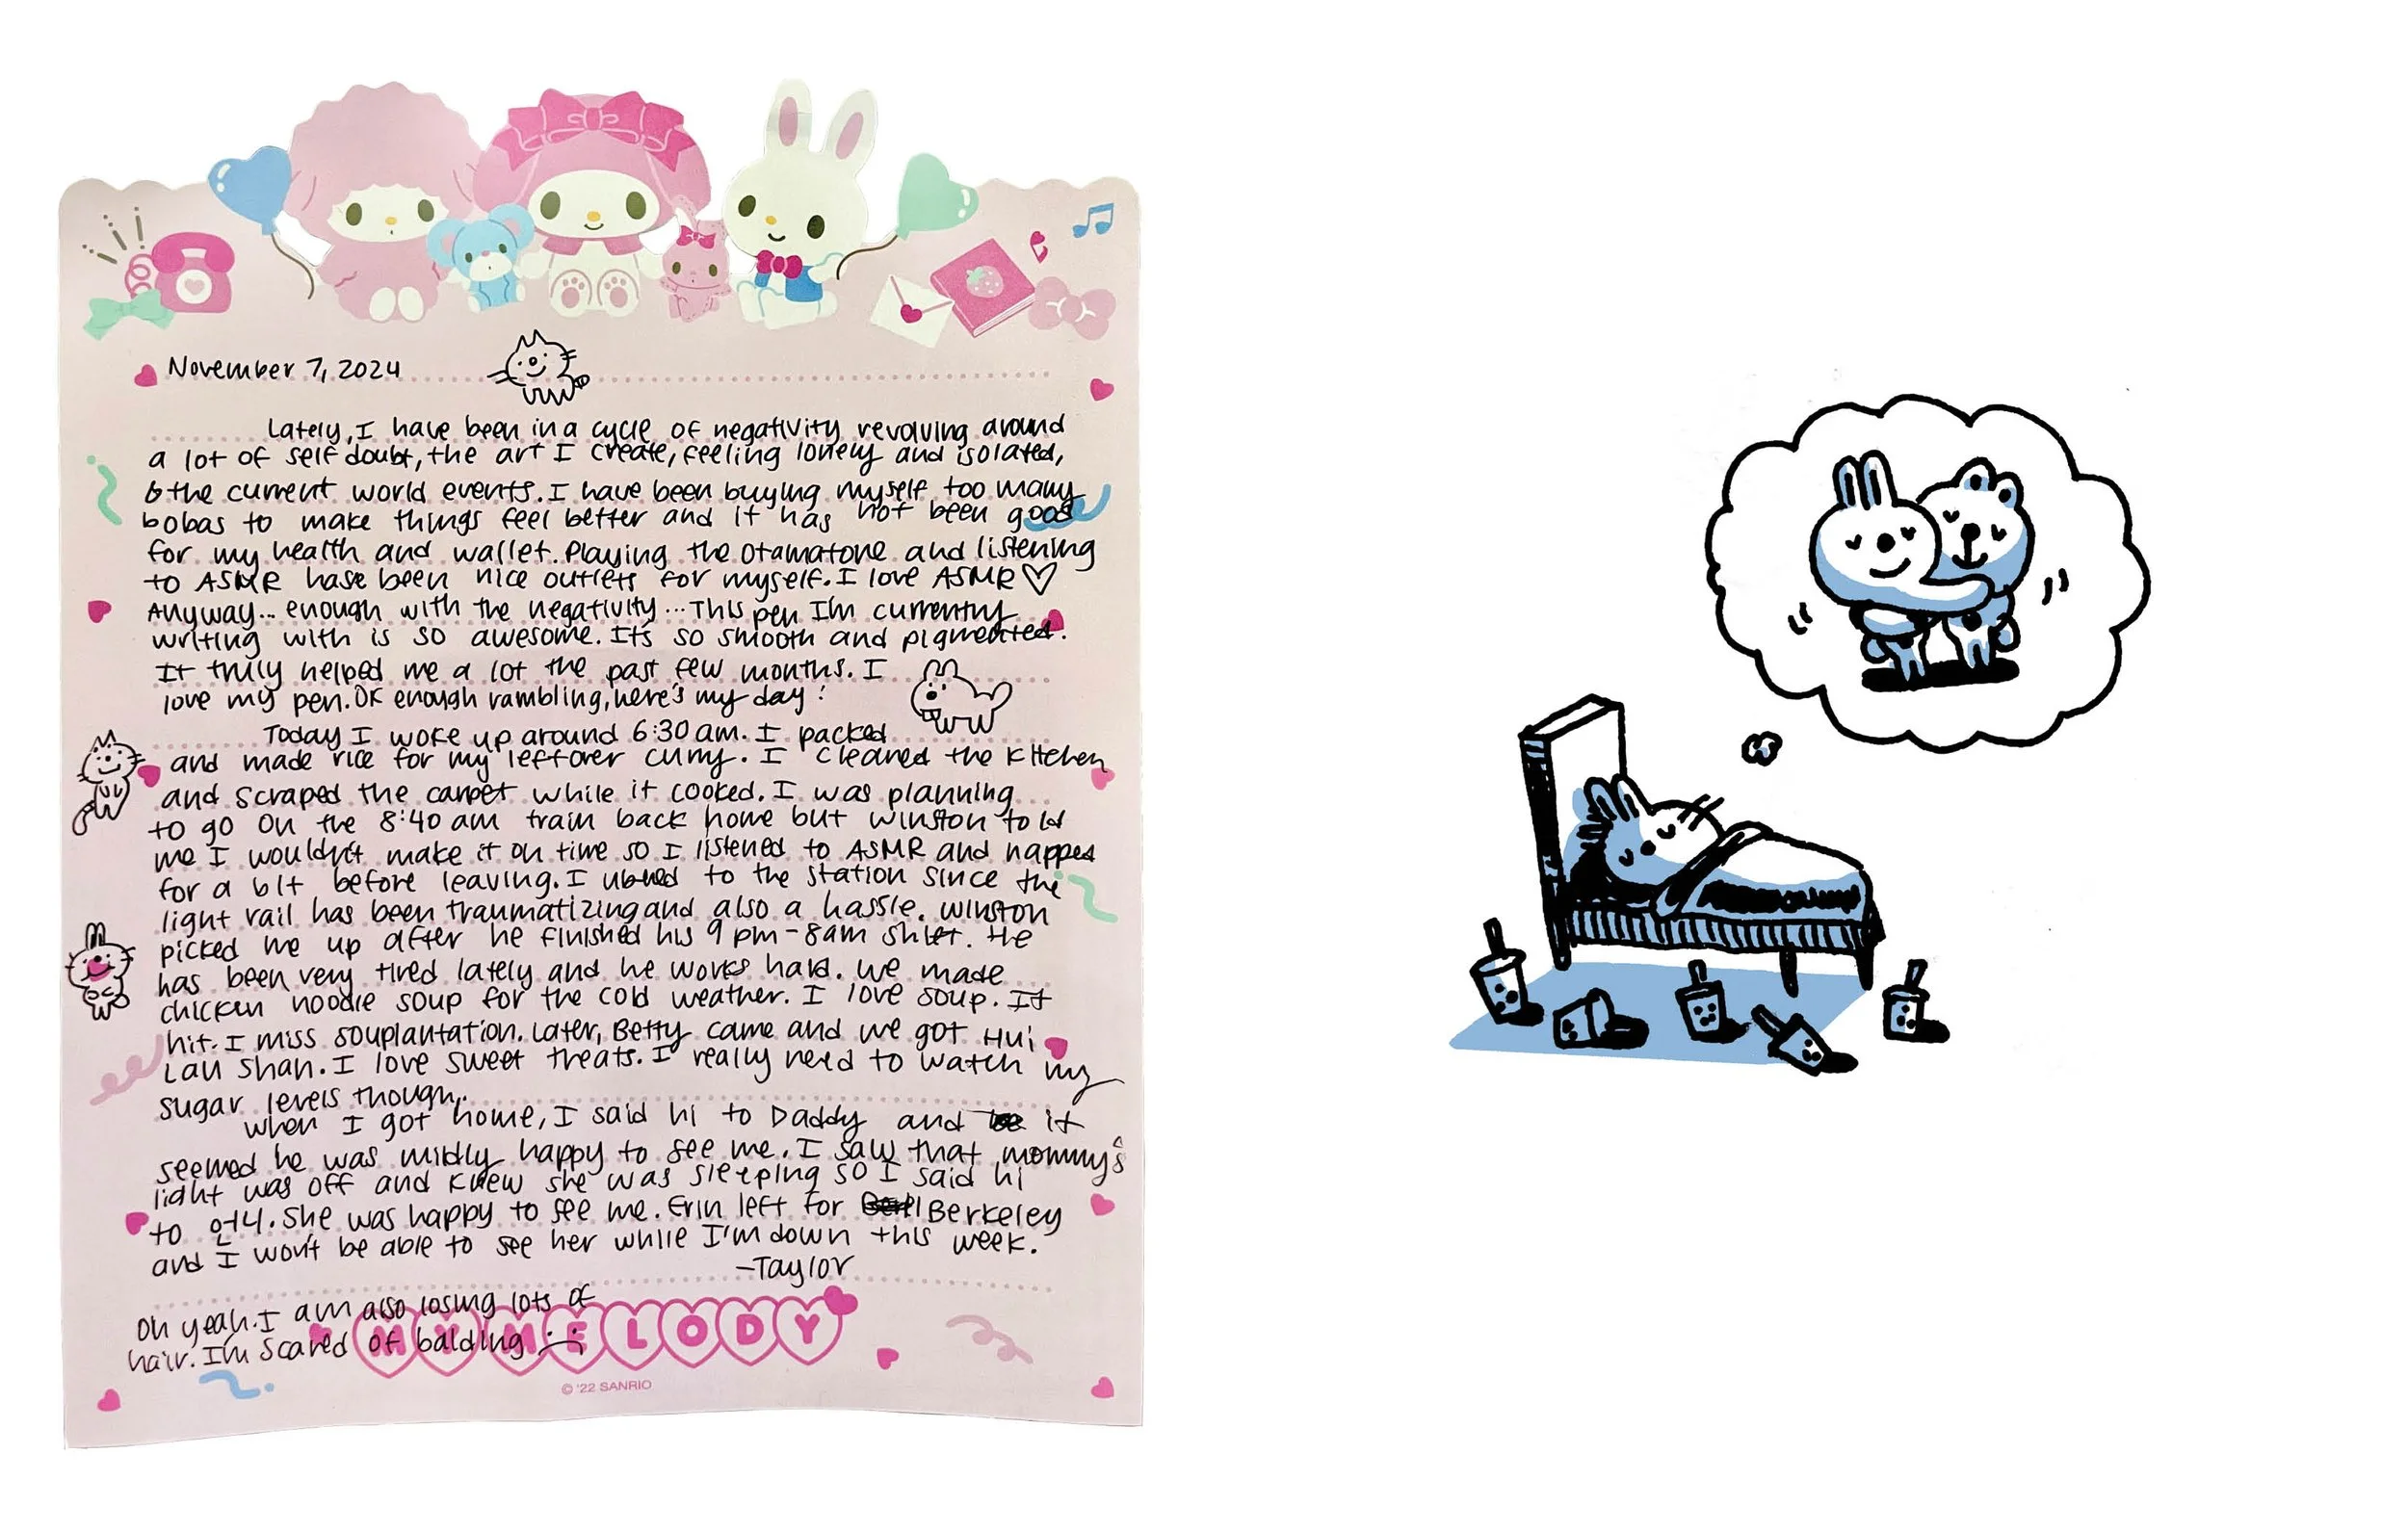 November 7, 2024
Lately, I have been in a cycle of negativity revolving around
a lot of self doubt, the art I create, feeling lonely and isolated,
& the current world events. I have been buying myself too many
bobas to make things feel better and it has not been good
for my health and wallet. Playing the otamatone and listening
to ASMR have been nice outlets for myself. I love ASMR ♡
Anyway... enough with the negativity... This pen I'm currently
writing with is so awesome. It's so smooth and pigmented.
It truly helped me a lot the past few months. I
love my pen. OK enough rambling, here's my day:
Today I woke up around 6:30 am. I packed
and made rice for my leftover curry. I cleaned the kitchen
and scraped the carpet while it cooked. I was planning
to go on the 8:40 am train back home but Winston told
me I wouldn't make it on time so I listened to ASMR and napped
for a bit before leaving. I ubered to the station since the
light rail has been traumatizing and also a hassle. Winston
picked me up after he finished his 9 pm - 8am shift. He
has been very tired lately and he works hard. We made
chicken noodle soup for the cold weather. I love soup. It
hit. I miss souplantation. Later, Betty came and we got Hui
Lau Shan. I love sweet treats. I really need to watch my
sugar levels though.
When I got home, I said hi to Daddy and it
seemed he was mildly happy to see me. I saw that mommy's
light was off and knew she was sleeping so I said hi
to She was happy to see me. Erin left for Berkeley
and I won't be able to see her while I'm down this week.
-Taylor
Oh yeah. I am also losing lots of
hair. I'm scared of balding :(
MY MELODY
© '22 SANRIO